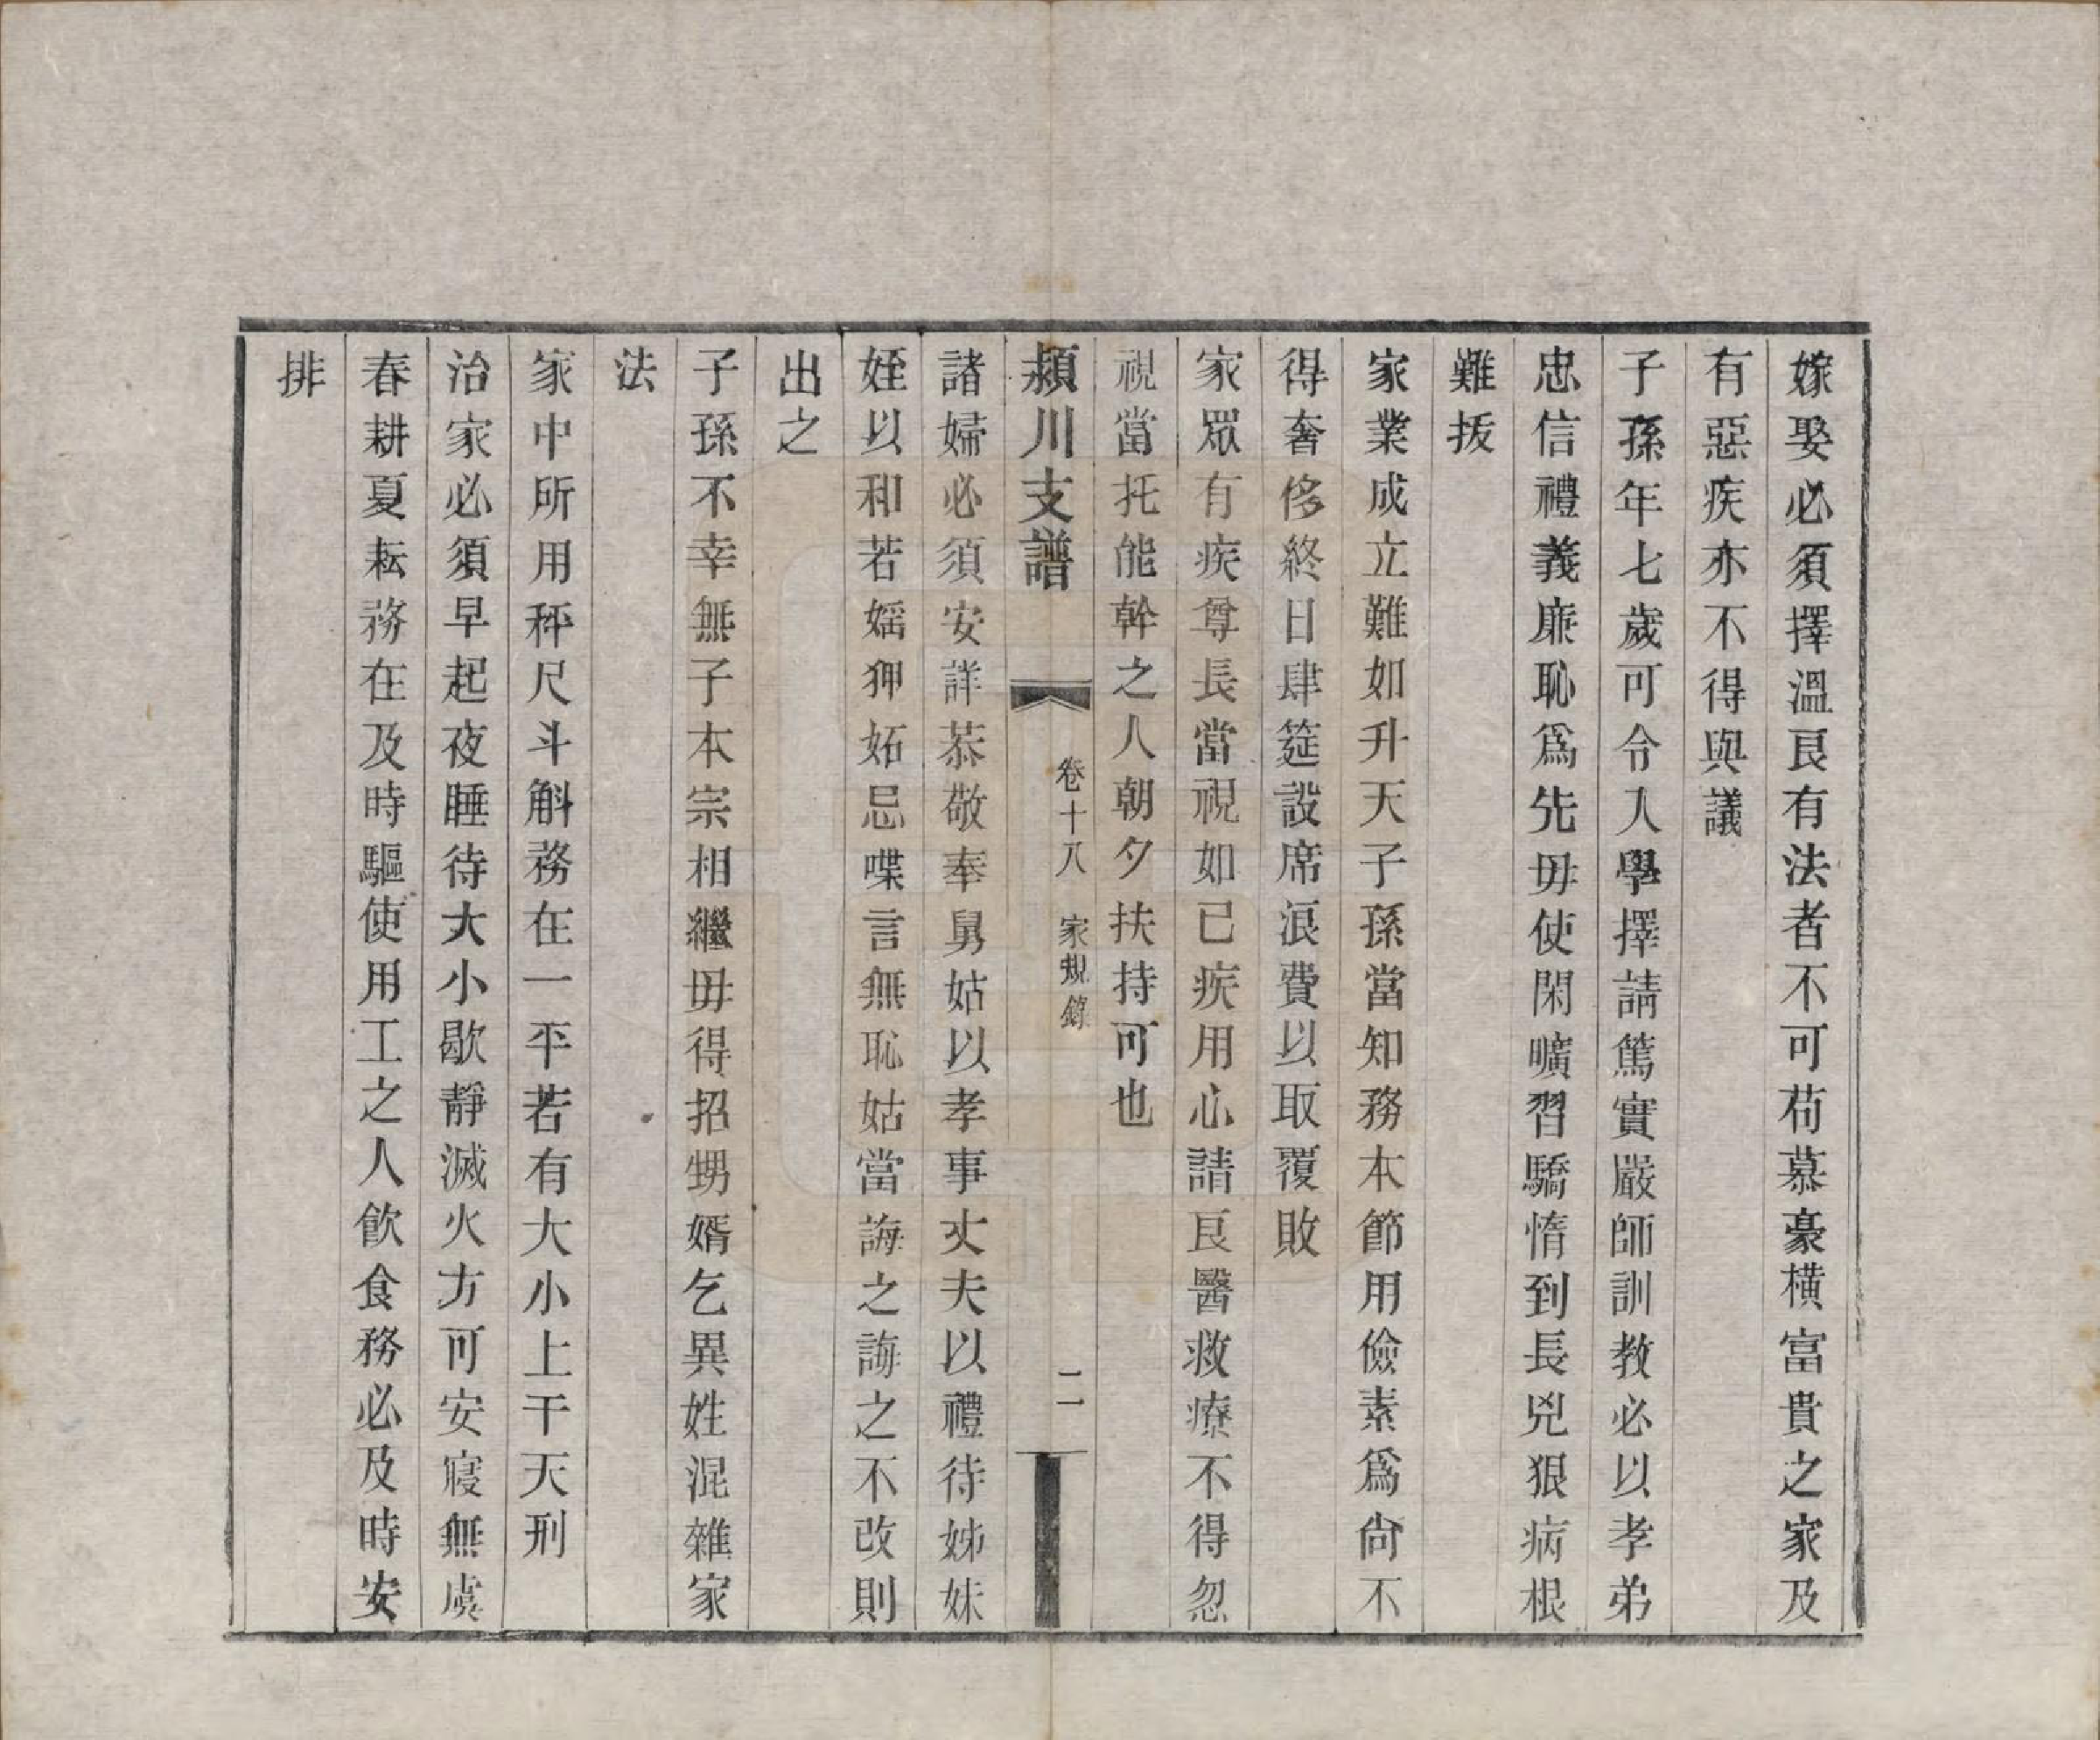 嫁娶必須擇溫良有法者不可苟慕豪橫富貴之家及
有惡疾亦不得與議
子孫年七歲可令入學擇請篤實嚴師訓教必以孝弟
忠信禮義廉恥爲先毋使閑曠習驕惰到長兇狠病根
難拔
家業成立難如升天子孫當知務本節用儉素爲尙不
得奢侈終日肆筵設席浪費以取覆敗
家眾有疾尊長當視如己疾用心請良醫救療不得忽
視當托能幹之人朝夕扶持可也
潁川支譜
卷十八
家規錄
二
諸婦必須安詳恭敬奉舅姑以孝事丈夫以禮待姊妹
姪以和若婬狎妬忌喋言無恥姑當誨之誨之不改則
出之
子孫不幸無子本宗相繼毋得招甥婿乞異姓混雜家
法
家中所用秤尺斗斛務在一平若有大小上干天刑
治家必須早起夜睡待大小歇靜滅火方可安寢無虞
春耕夏耘務在及時驅使用工之人飮食務必及時安
排